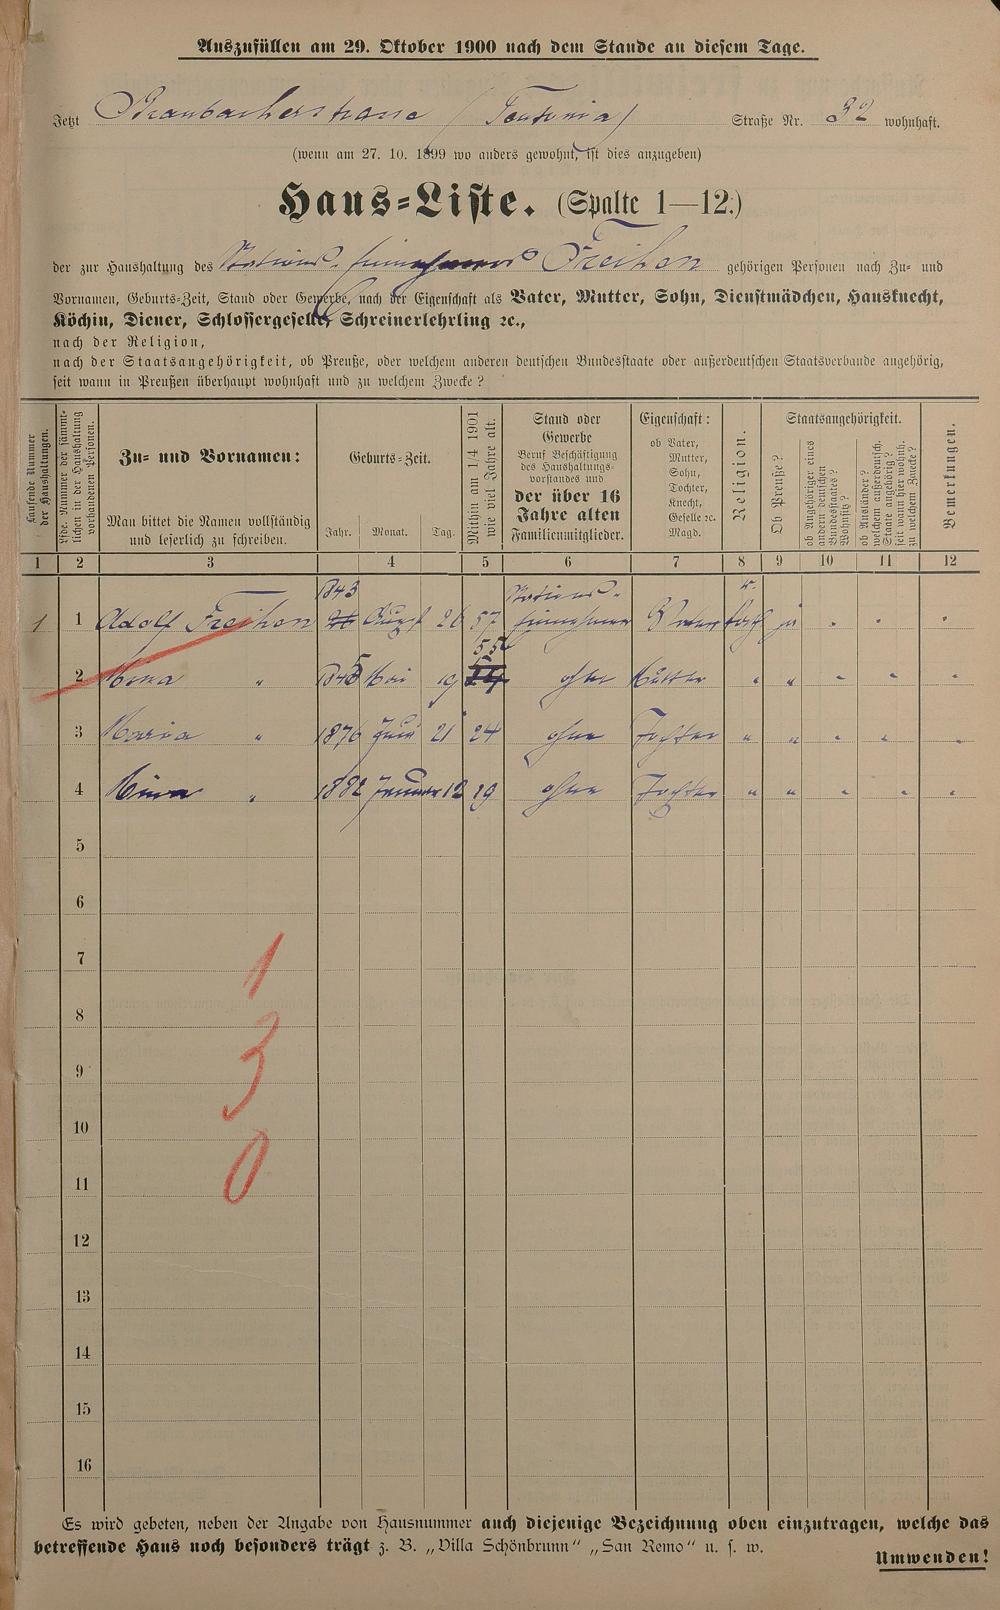 Auszufüllen am 29. Oktober 1900 nach dem Stande an diesem Tage.
Jetzt Braubacherstrasse (Teutonia) Straße Nr. 32 wohnhaft.
(wenn am 27. 10. 1899 wo anders gewohnt, ist dies anzugeben)
Haus-Liste. (Spalte 1—12.)
der zur Haushaltung des Stations-Einnehmers Freihen gehörigen Personen nach Zu- und
Vornamen, Geburts-Zeit, Stand oder Gewerbe, nach der Eigenschaft als Vater, Mutter, Sohn, Dienstmädchen, Hausknecht,
Köchin, Diener, Schlossergeselle, Schreinerlehrling ꝛc.,
nach der Religion,
nach der Staatsangehörigkeit, ob Preuße, oder welchem anderen deutschen Bundesstaate oder außerdeutschen Staatsverbande angehörig,
seit wann in Preußen überhaupt wohnhaft und zu welchem Zwecke?
Laufende Nummer der Haushaltungen.
Lfde. Nummer der sämmtlichen in der Haushaltung vorhandenen Personen.
Zu- und Vornamen:
Man bittet die Namen vollständig
und leserlich zu schreiben.
Geburts-Zeit.
Jahr. Monat. Tag.
Mithin am 1/4 1901 wie viel Jahre alt.
Stand oder
Gewerbe
Beruf Beschäftigung
des Haushaltungs-
vorstandes und
der über 16
Jahre alten
Familienmitglieder.
Eigenschaft:
ob Vater,
Mutter,
Sohn,
Tochter,
Knecht,
Geselle ꝛc.
Magd.
Religion.
Staatsangehörigkeit.
Ob Preuße?
ob Angehöriger eines andern deutschen Bundesstaates? Wohnsitz?
ob Ausländer? welchem außerdeutsch. Staate angehörig? seit wann hier wohnh. zu welchem Zwecke?
Bemerkungen.
1 2 3 4 5 6 7 8 9 10 11 12
1 1 Adolf Freihen 1843 August 26 57 Stations-Einnehmer Vater kath ja
2 Mina " 1845 Mai 19 55 ohne Mutter " " " " "
3 Maria " 1876 Juni 21 24 ohne Tochter " " " " "
4 Mina " 1882 Januar 12 19 ohne Tochter " " " " "
5
6
7
1
8
3
9
10
0
11
12
13
14
15
16
Es wird gebeten, neben der Angabe von Hausnummer auch diejenige Bezeichnung oben einzutragen, welche das
betreffende Haus noch besonders trägt z. B. „Villa Schönbrunn“ „San Remo“ u. s. w.
Umwenden!